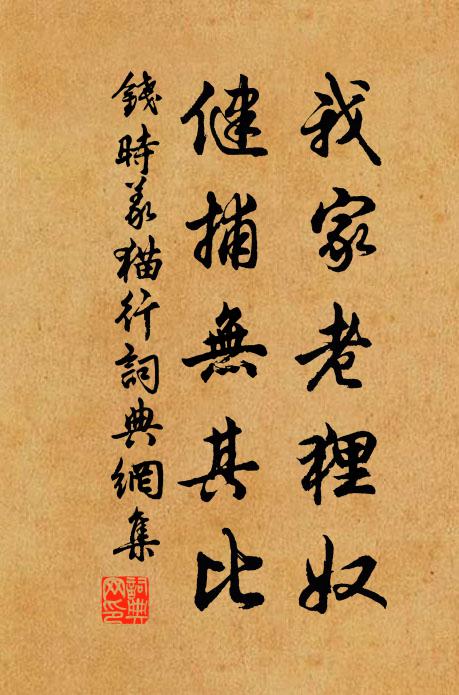 我家老狸奴
健捕無其比
錢時義猫行詞典網集
詞典
网印